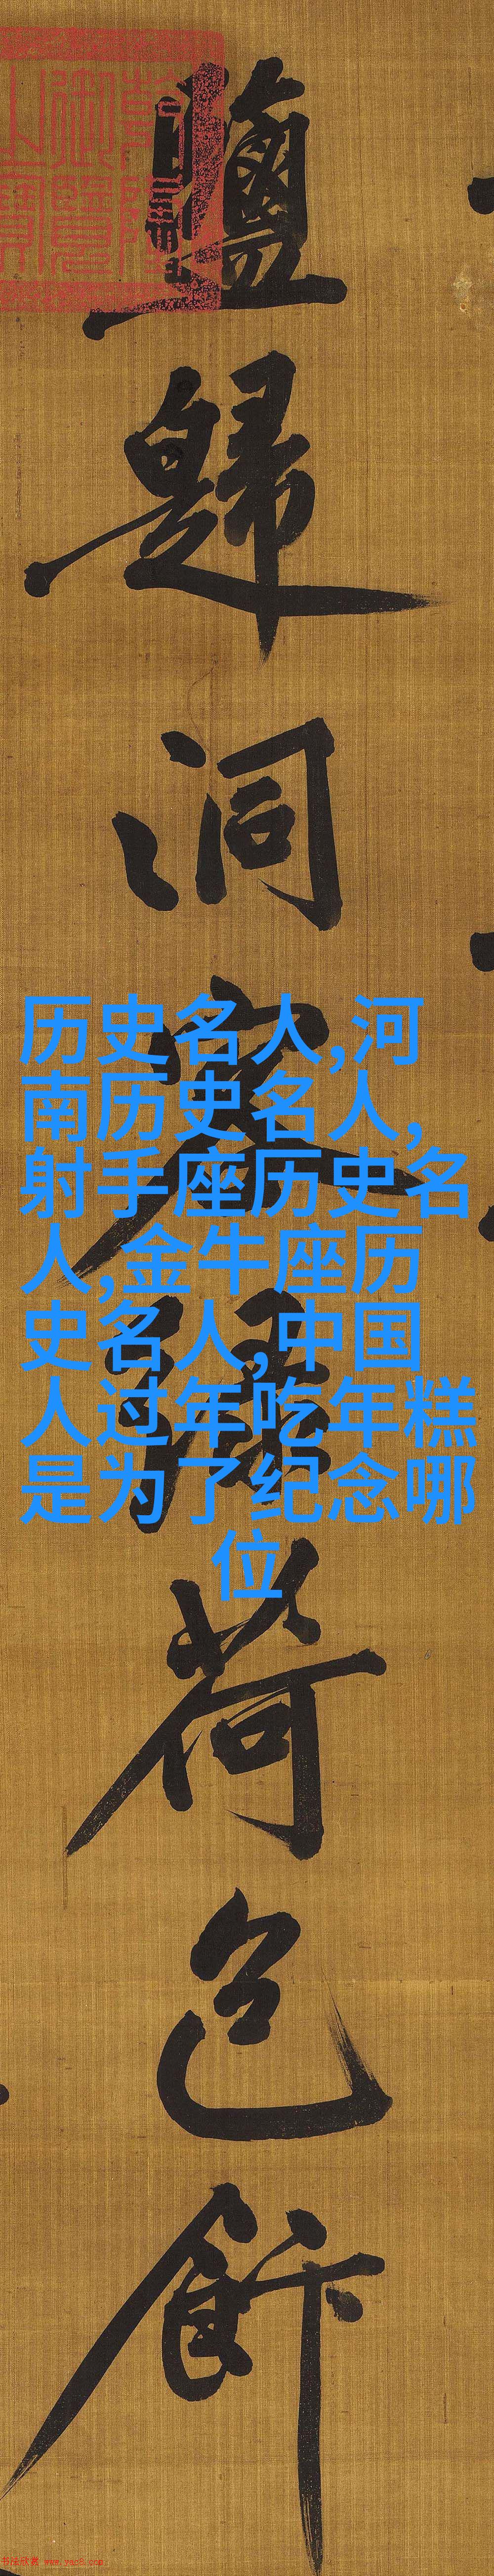 鹽歸洞客荷包飰
历史名人,河
南历史名人,
射手座历史名
人,金牛座历
史名人,中国
人过年吃年糕
是为了纪念哪
位
书法欣赏 www.yac8.com